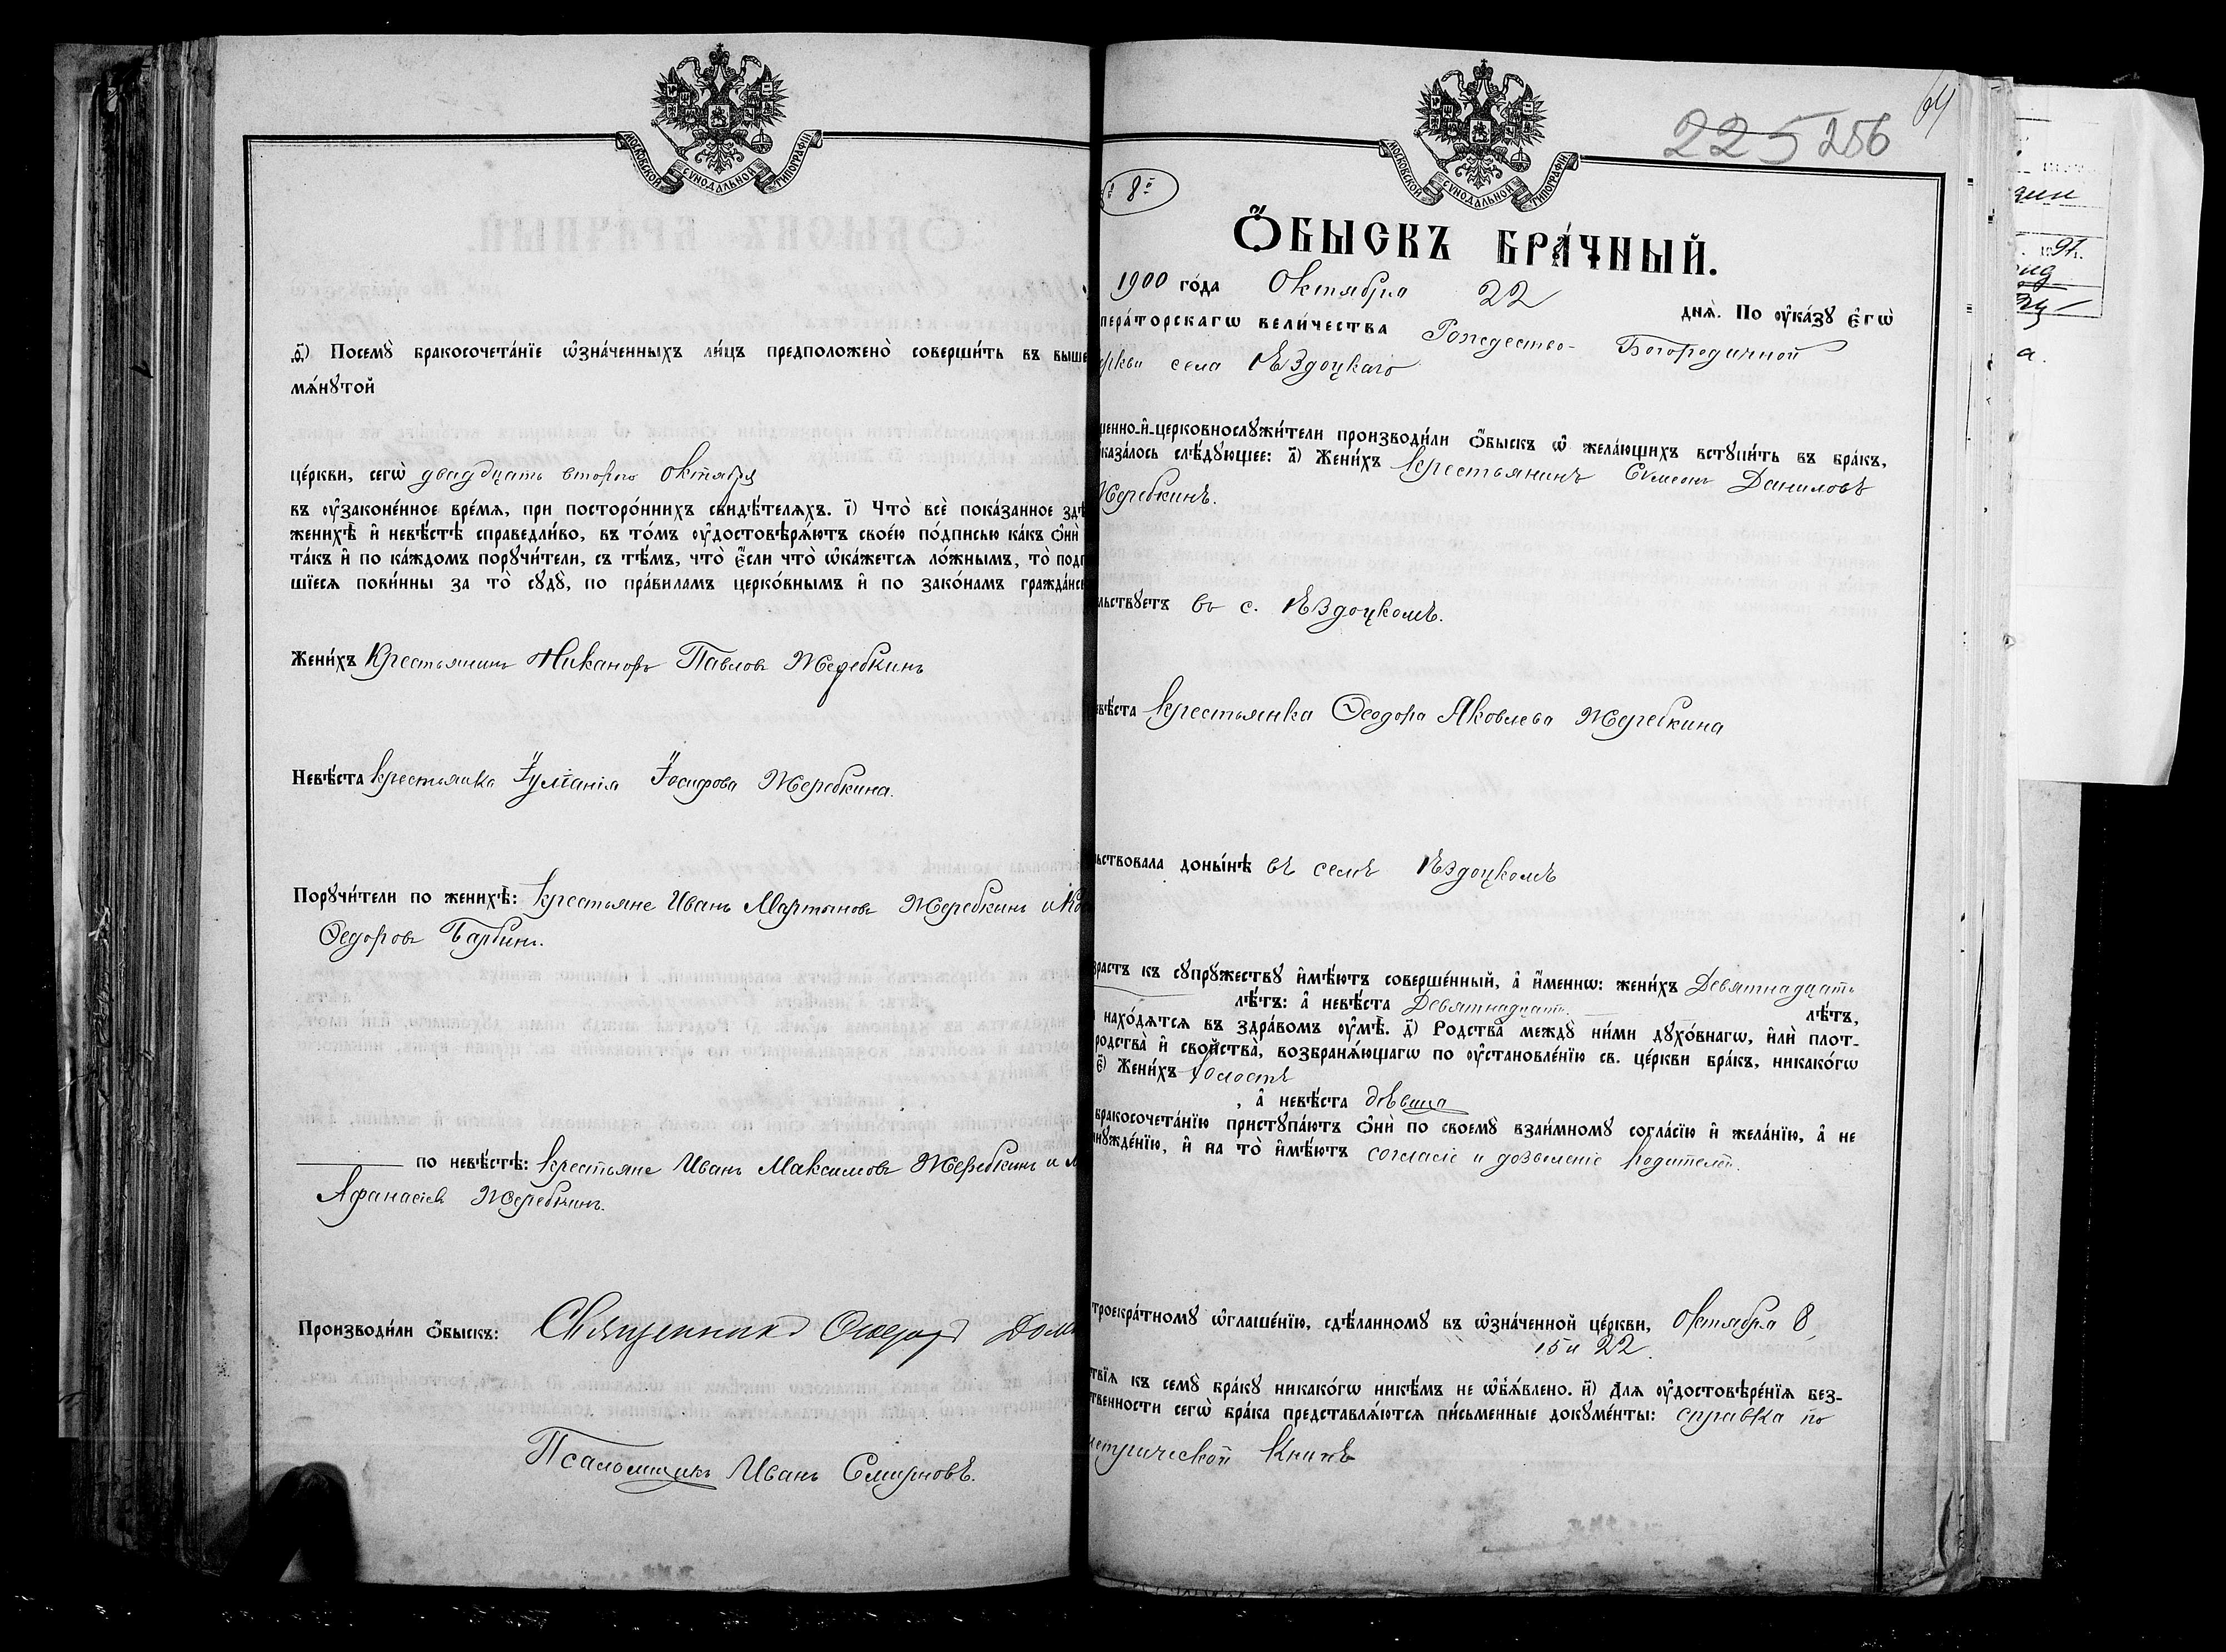 МОСКОВСКОЙ СУНОДАЛЬНОЙ ТИПОГРАФІИ
ѳ҃) Посемꙋ̀ бракосочета́нїе ѡ҆зна́ченныхъ ли́цъ предположено̀ соверши́ть въ выше
мѧ́нꙋтой
це́ркви, сегѡ̀ двадцать второго Октября
въ ᲂу҆законе́нное вре́мѧ, при посторо́ннихъ свидѣ́телѧхъ. і҃) Что̀ всѐ пока́занное здѣ
женихѣ̀ и҆ невѣ́стѣ справедли́во, въ то́мъ ᲂу҆достовѣрѧ́ютъ свое́ю по́дписью ка́къ ѻ҆нѝ
та́къ и҆ по ка́ждомъ порꙋчи́тели, съ тѣ́мъ, что̀ є҆́сли что̀ ѡ҆ка́жетсѧ ло́жнымъ, то̀ подп
шїесѧ пови́нны за то̀ сꙋдꙋ̀, по пра́виламъ церко́внымъ и҆ по зако́намъ гражда́нск
Жени́хъ Крестьянинъ Никаноръ Павловъ Жеребкинъ
Невѣ́ста крестьянка Іулианія Іосифова Жеребкина.
Порꙋчи́тели по женихѣ̀: крестьяне Иванъ Мартыновъ Жеребкинъ и
Ѳедоровъ Барбинъ.
по невѣ́стѣ: крестьяне Иванъ Максимовъ Жеребкинъ и
Афанасіевъ Жеребкинъ.
Производи́ли ѻ҆́быскъ: Священникъ Ѳеодоръ
Псаломщикъ Иванъ Смирновъ.
64
МОСКОВСКОЙ СУНОДАЛЬНОЙ ТИПОГРАФІИ
225 256
8
Ѻ҆́БЫСКЪ БРА́ЧНЫЙ.
1900 го́да Октября 22 днѧ̀. По ᲂу҆ка́зꙋ є҆гѡ̀
пера́торскагѡ вели́чества Рождество-Богородичной
ркви села Ѣздоцкаго
щенно-и҆-церковнослꙋжи́тели производи́ли ѻ҆́быскъ ѡ҆ жела́ющихъ встꙋпи́ть въ бра́къ,
каза́лось слѣ́дꙋющее: а҃) Жени́хъ крестьянинъ Симеонъ Даниловъ
Жеребкинъ.
льствꙋетъ въ с. Ѣздоцкомъ.
евѣ́ста крестьянка Ѳеодора Яковлева Жеребкина
льствовала доны́нѣ въ селѣ Ѣздоцкомъ
зрастъ къ сꙋпрꙋ́жествꙋ и҆мѣ́ютъ соверше́нный, а҆ и҆́меннѡ: жени́хъ Девятнадцать
лѣ́тъ: а҆ невѣ́ста Девятнадцать лѣ́тъ,
нахо́дѧтсѧ въ здра́вомъ ᲂу҆мѣ̀. д҃) Родства̀ междꙋ̀ ни́ми дꙋхо́внагѡ, и҆лѝ плот-
родства̀ и҆ сво́йства̀, возбранѧ́ющагѡ по ᲂу҆становле́нїю св. це́ркви бра́къ, никако́гѡ
є҃) Жени́хъ холостъ
, а҆ невѣ́ста дѣвица
бракосочета́нїю пристꙋпа́ютъ ѻ҆нѝ по своемꙋ̀ взаи́мномꙋ согла́сїю и҆ жела́нїю, а҆ не
нꙋжде́нїю, и҆ на то̀ и҆мѣ́ютъ согласіе и дозволеніе родителей.
троекра́тномꙋ ѡ҆глаше́нїю, сдѣ́ланномꙋ въ ѡ҆зна́ченной це́ркви, Октября 8,
15 и 22.
твїѧ къ семꙋ̀ бра́кꙋ никако́гѡ никѣ́мъ не ѡ҆б̾ѧ́влено. и҃) Длѧ ᲂу҆достовѣре́нїѧ без-
твенности сегѡ̀ бра́ка представлѧ́ютсѧ пи́сьменные докꙋме́нты: справка по
метрической книгѣ